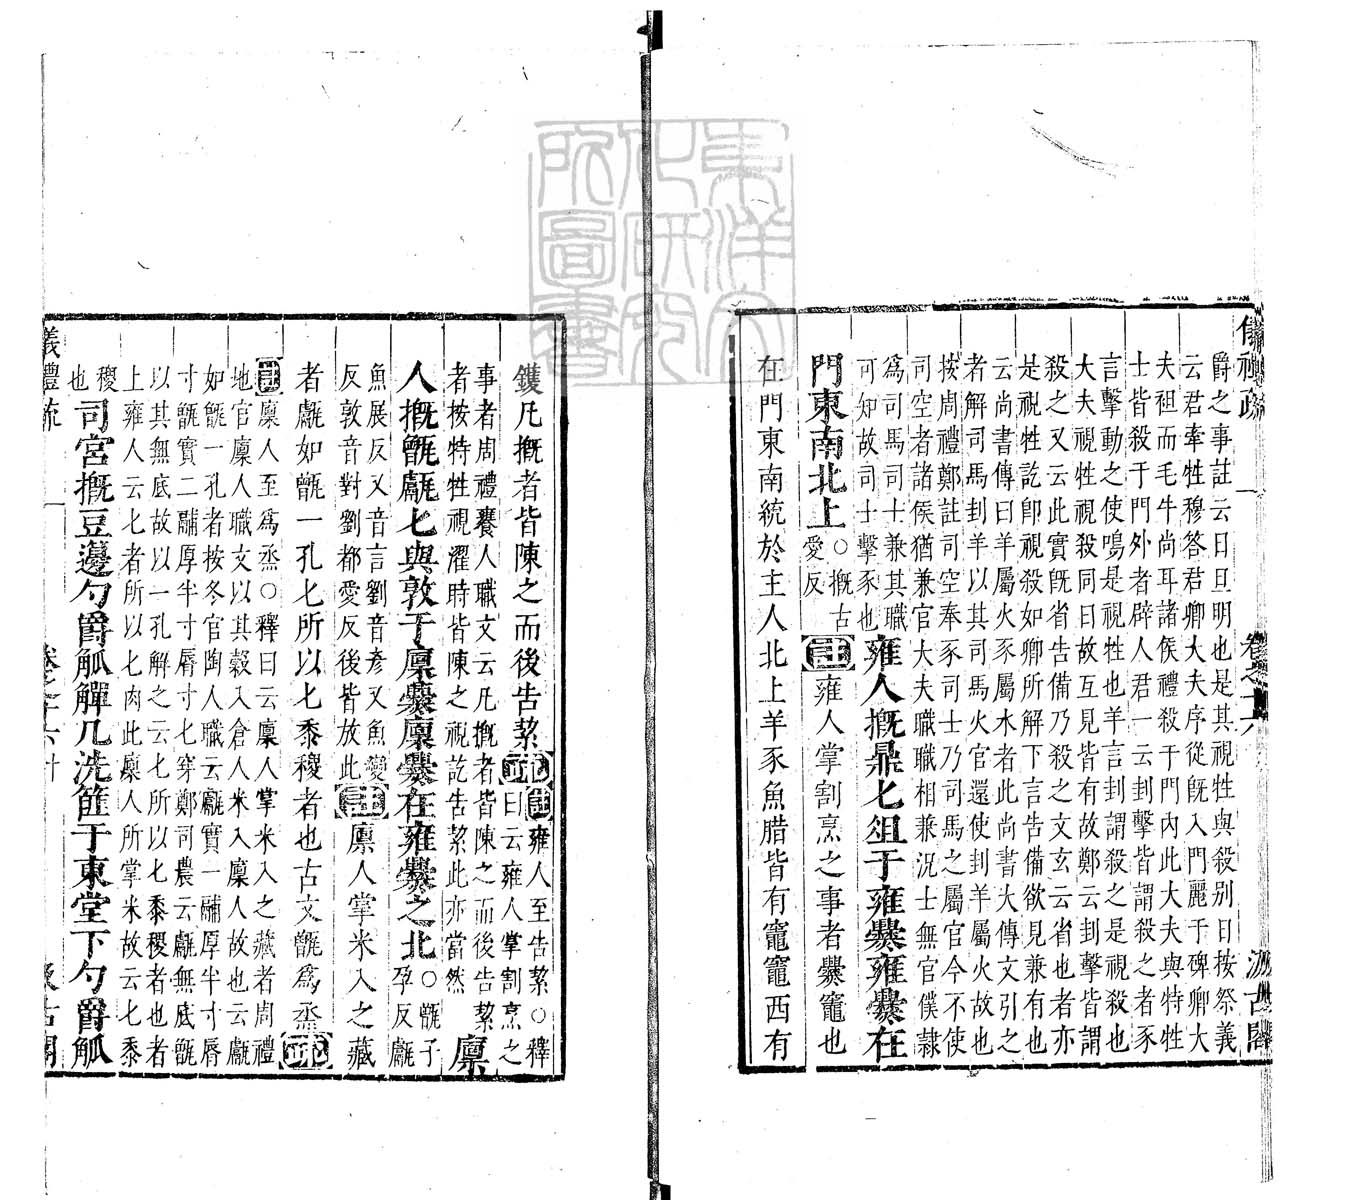 爵之事註云日旦明也是其視牲與殺別日按祭義
云君牽牲穆答君卿大夫序從旣入門麗于碑卿大
夫袒而毛牛尚耳諸侯禮殺于門內此大夫與特牲
士皆殺于門外者辟人君一云刲擊皆謂殺之者豕
言擊動之使鳴是視牲也羊言刲謂殺之是視殺也
大夫視牲視殺同日故互見皆有故鄭云刲擊皆謂
殺之又云此實旣省告備乃殺之文玄云省也者亦
是視牲訖卽視殺如卿所解下言告備欲見兼有也
云尚書傳曰羊屬火豕屬水者此尚書大傳文引之
者解司馬刲羊以其司馬火官還使刲羊屬火故也
按周禮鄭註司空奉豕司士乃司馬之屬官今不使
司空者諸侯猶兼官大夫職職相兼況士無官僕隷
爲司馬司士兼其職
可知故司士擊豕也
雍人摡鼎匕俎于雍爨雍爨在
門東南北上
○摡古
愛反
註雍人掌割烹之事者爨竈也
在門東南統於主人北上羊豕魚腊皆有竈竈西有
鑊凡摡者皆陳之而後告絜
疏
註雍人至告絜○釋
曰云雍人掌割烹之
事者周禮饔人職文云凡摡者皆陳之而後告絜
者按特牲視濯時皆陳之視訖告絜此亦當然
廩
人摡甑甗匕與敦于廩爨廩爨在雍爨之北
○甑子
孕反甗
魚展反又音言劉音彥又魚變
反敦音對劉都愛反後皆放此
註廩人掌米入之藏
者甗如甑一孔匕所以匕黍稷者也古文甑爲烝
疏
註廩人至爲烝○釋曰云廩人掌米入之藏者周禮
地官廩人職文以其穀入倉人米入廩人故也云甗
如甑一孔者按冬官陶人職云甗實一鬴厚半寸脣
寸甑實二鬴厚半寸脣寸七穿鄭司農云甗無底甑
以其無底故以一孔解之云匕所以匕黍稷者也者
上雍人云匕者所以匕肉此廩人所掌米故云匕黍
稷
也
司宮摡豆籩勺爵觚觶几洗篚于東堂下勺爵觚